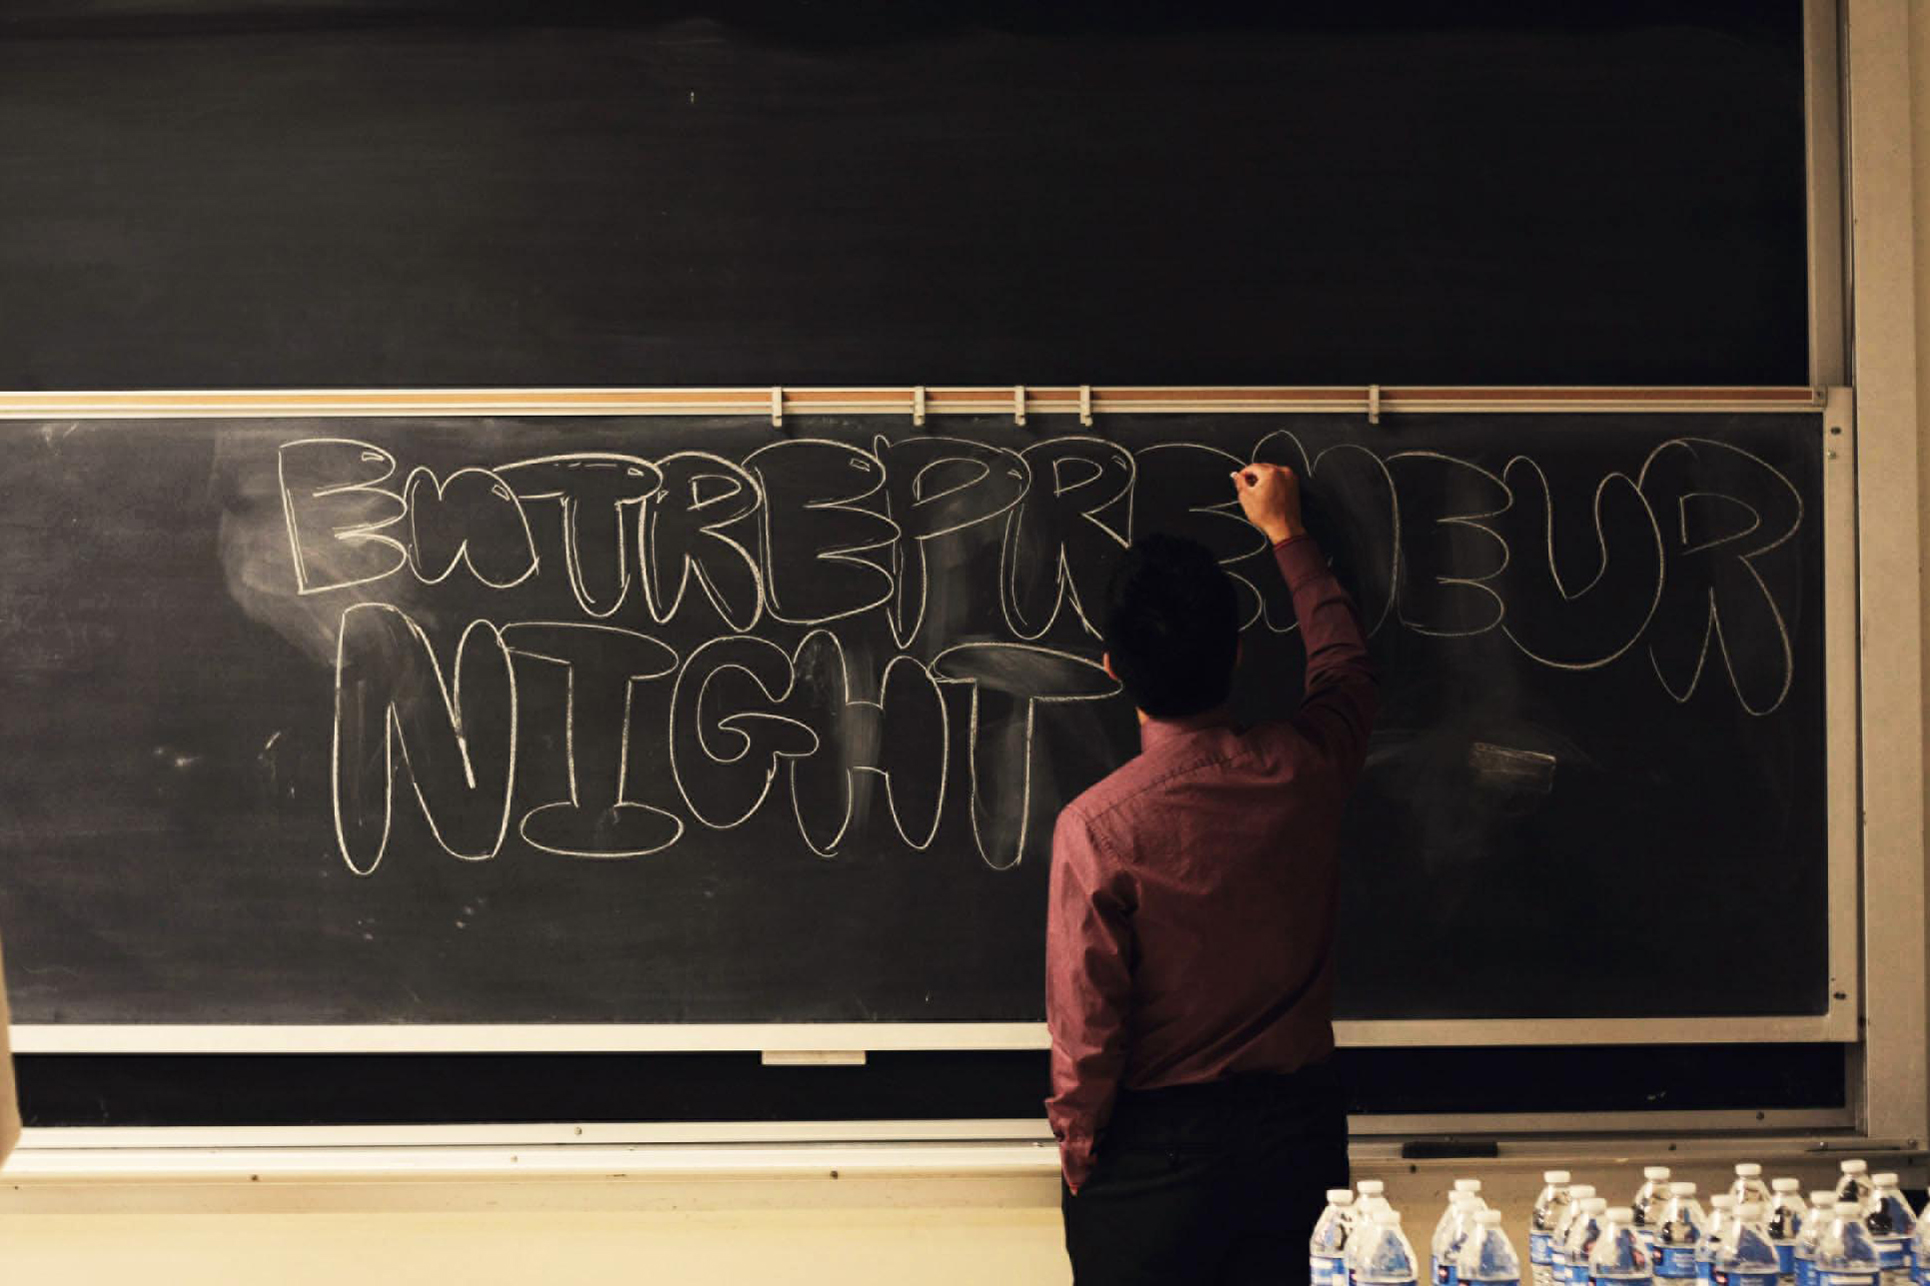 EnTREPRENEUR
NIGHT